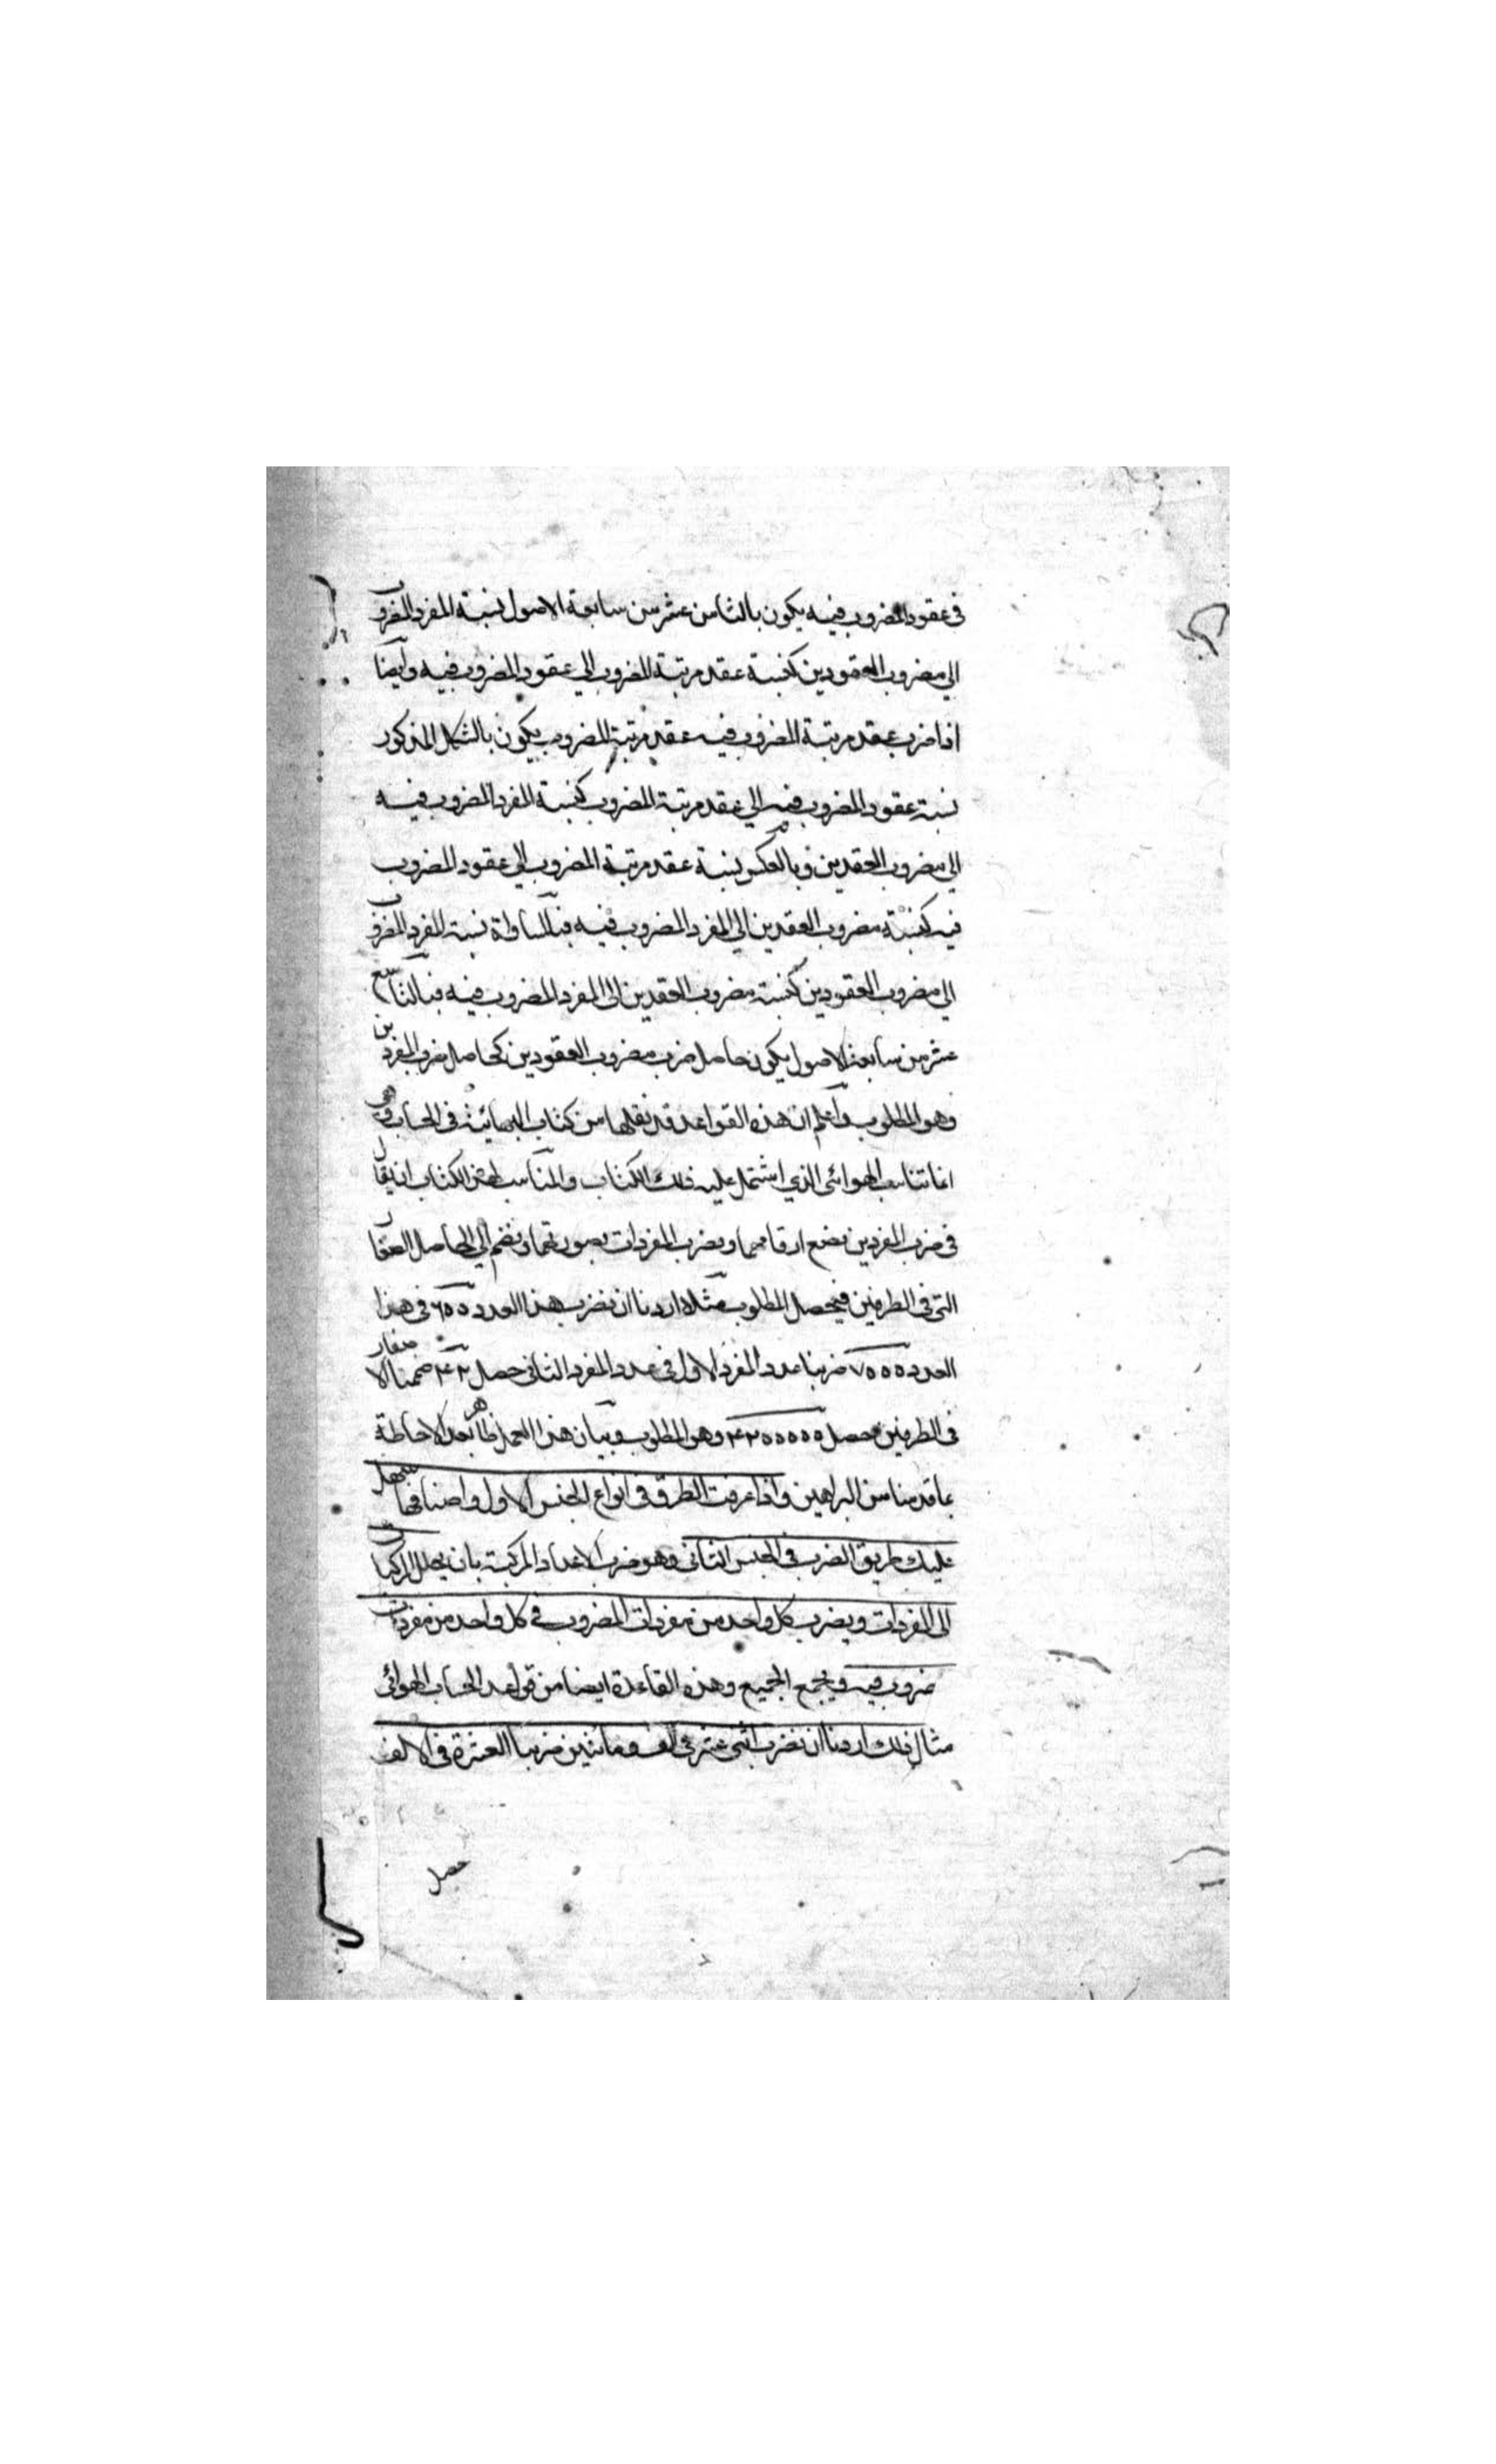 في عقود المضروب فيه يكون بالثامن عشر من سابعة الاصول نسبة المفرد المضروب
الى مضروب العقودين كنسبة عقد مرتبة المضروب الى عقود المضروب فيه وايضا
اذا ضرب عقد مرتبة المضروب فيه عقد مرتبة المضروب يكون بالشكل المذكور
نسبة عقود المضروب فيه الى عقد مرتبة المضروب كنسبة المفرد المضروب فيه
الى مضروب العقدين وبالعكس نسبة عقد مرتبة المضروب الى عقود المضروب
فيه كنسبة مضروب العقدين الى المفرد المضروب فيه فبالمساواة نسبة المفرد المضروب
الى مضروب العقودين كنسبة مضروب العقدين الى المفرد المضروب فيه فبالتاسع
عشر من سابعة الاصول يكون حاصل ضرب مضروب العقودين كحاصل ضرب المفردين
وهو المطلوب واعلم ان هذه القواعد قد نقلها من كتاب البهائية في الحساب وهي
انما تناسب الهوائي الذي اشتمل عليه ذلك الكتاب والمناسب لهذا الكتاب ان يقال
في ضرب المفردين نضع ارقامهما ونضرب المفردات بصورتهما ونضم الى الحاصل
التي في الطرفين فيحصل المطلوب مثلا اردنا ان نضرب هذا العدد ٦٥٥ في هذا
العدد ٧٥٥٥ ضربنا عدد المفرد الاول في عدد المفرد الثاني حصل ۴۲ ضممنا الاصفار
في الطرفين حصل ۴۲٥٥٥٥٥ وهو المطلوب وبيان هذا العمل ظاهر بعد الاحاطة
بما قدمنا من البراهين واذا عرفت الطرق في انواع الجنس الاول واصنافها سهل
عليك طريق الضرب في الجنس الثاني وهو ضرب الاعداد المركبة بان يحلل المركبات
الى المفردات ويضرب كل واحد من مفردات المضروب في كل واحد من مفردات
ضروب فيه ويجمع الجميع وهذه القاعدة ايضا من قواعد الحساب الهوائي
مثال ذلك اردنا ان نضرب اثنى عشر في الف ومائتين ضربنا العشرة في الالف
حصل